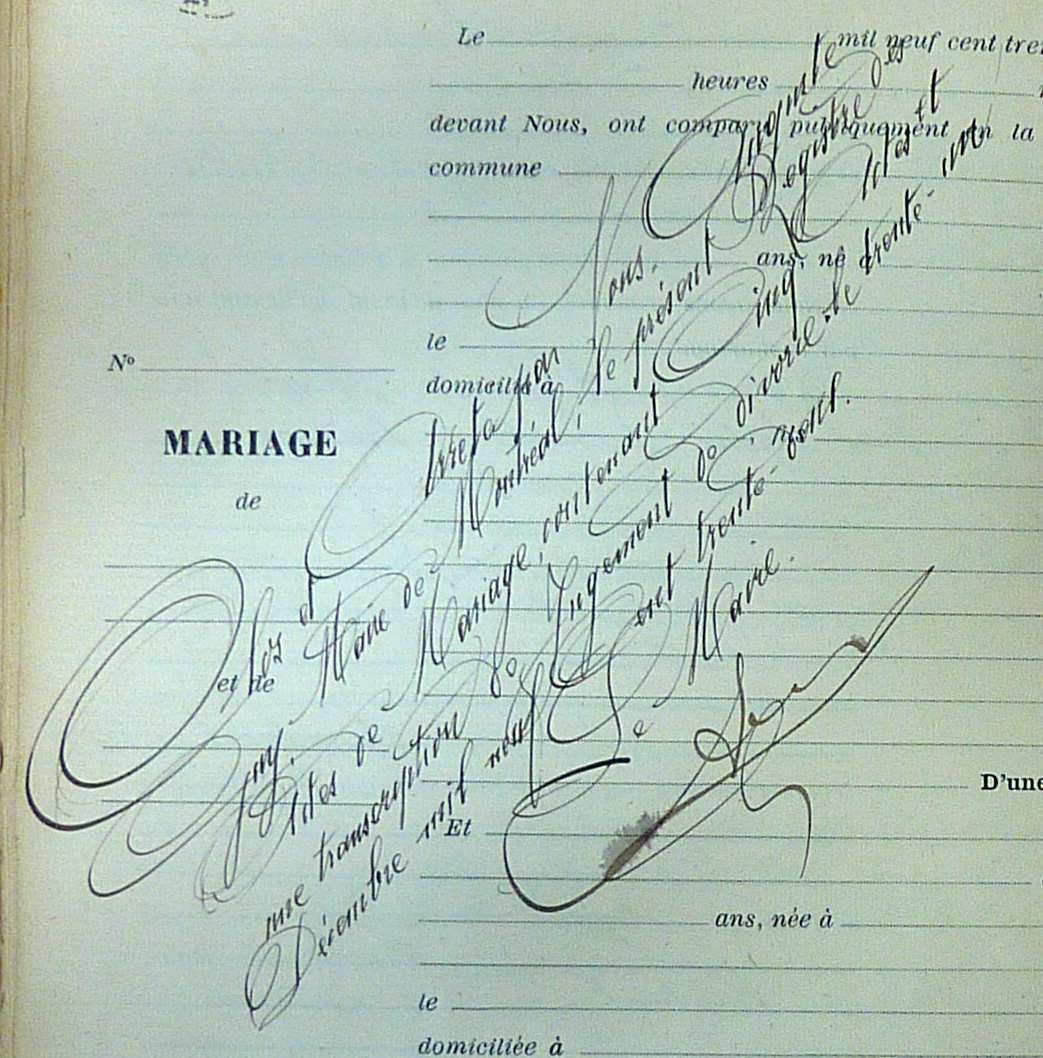 Le mil neuf cent tren
heures
devant Nous, ont comparu publiquement en la
commune
ans, né à
le
domicilié à
Nº
MARIAGE
de
et de
D'une
Et
ans, née à
le
domiciliée à
Clos et Arrêté par Nous. Auguste
Guy, Maire de Montréal, le présent Registre des
Actes de Mariage, contenant Cinq Actes et
une transcription de Jugement de divorce, le trente-un
Décembre mil neuf cent trente-neuf.
Le Maire.